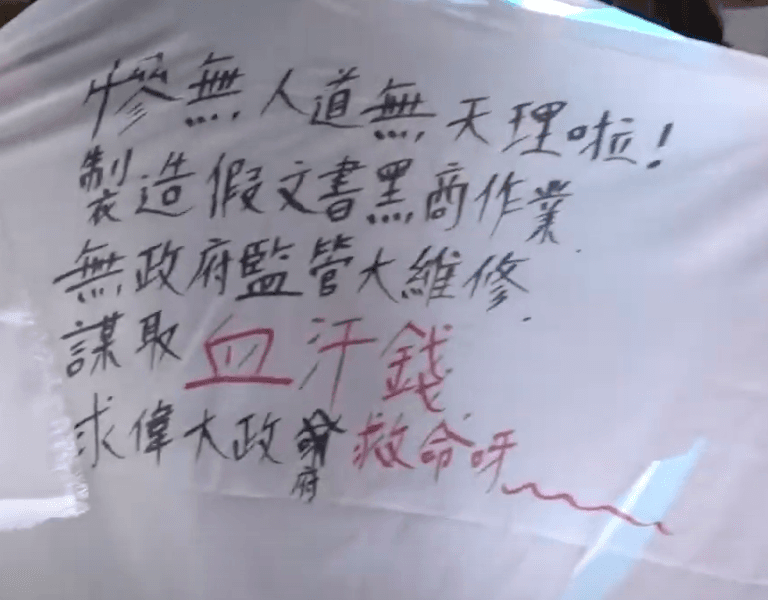 慘無人道無天理啦！
製造假文書黑商作業
無政府監管大維修
謀取血汗錢
求偉大政府救命呀